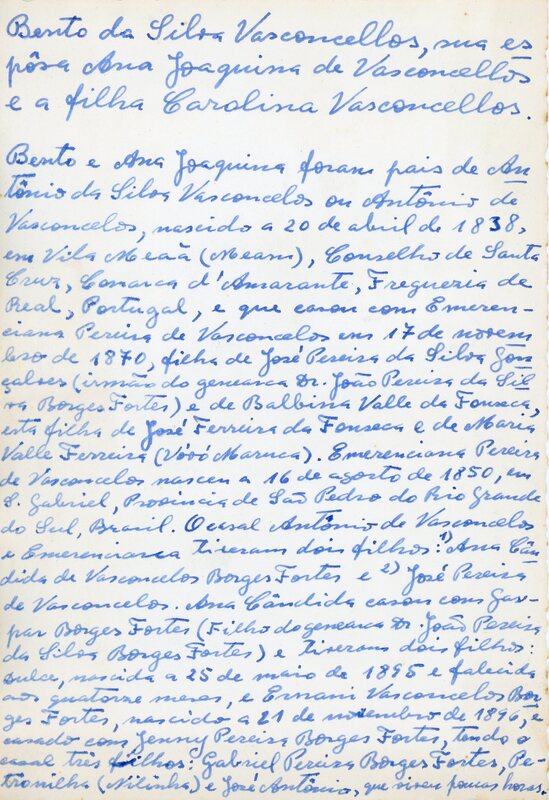 Bento da Silva Vasconcellos, sua es
pôsa Ana Joaquina de Vasconcellos
e a filha Carolina Vasconcellos.
Bento e Ana Joaquina foram pais de An
tônio da Silva Vasconcelos ou Antônio de
Vasconcelos, nascido a 20 de abril de 1838,
em Vila Meaã (Meam), Conselho de Santa
Cruz, Comarca d'Amarante, Freguezia de
Real, Portugal, e que casou com Emeren-
ciana Pereira de Vasconcelos em 17 de novem
bro de 1870, filha de José Pereira da Silva Gon
çalves (irmão do genearca Dr. João Pereira da Sil
va Borges Fortes) e de Balbina Valle da Fonseca,
esta filha de José Ferreira da Fonseca e de Maria
Valle Ferreira (Vóvó Maruca). Emerenciana Pereira
de Vasconcelos nasceu a 16 de agosto de 1850, em
S. Gabriel, Provincia de São Pedro do Rio Grande
do Sul, Brasil. O casal Antônio de Vasconcelos
e Emerenciana tiveram dois filhos: 1) Ana Cân
dida de Vasconcelos Borges Fortes e 2) José Pereira
de Vasconcelos. Ana Cândida casou com Gas-
par Borges Fortes (Filho do genearca Dr. João Pereira
da Silva Borges Fortes) e tiveram dois filhos:
Dulce, nascida a 25 de maio de 1895 e falecida
aos quatorze meses, e Ernani Vasconcelos Bor
ges Fortes, nascido a 21 de novembro de 1896, é
casado com Jenny Pereira Borges Fortes, tendo o
casal três filhos: Gabriel Pereira Borges Fortes, Pe-
tronilha (Nilinha) e José Antônio, que viveu poucas horas.